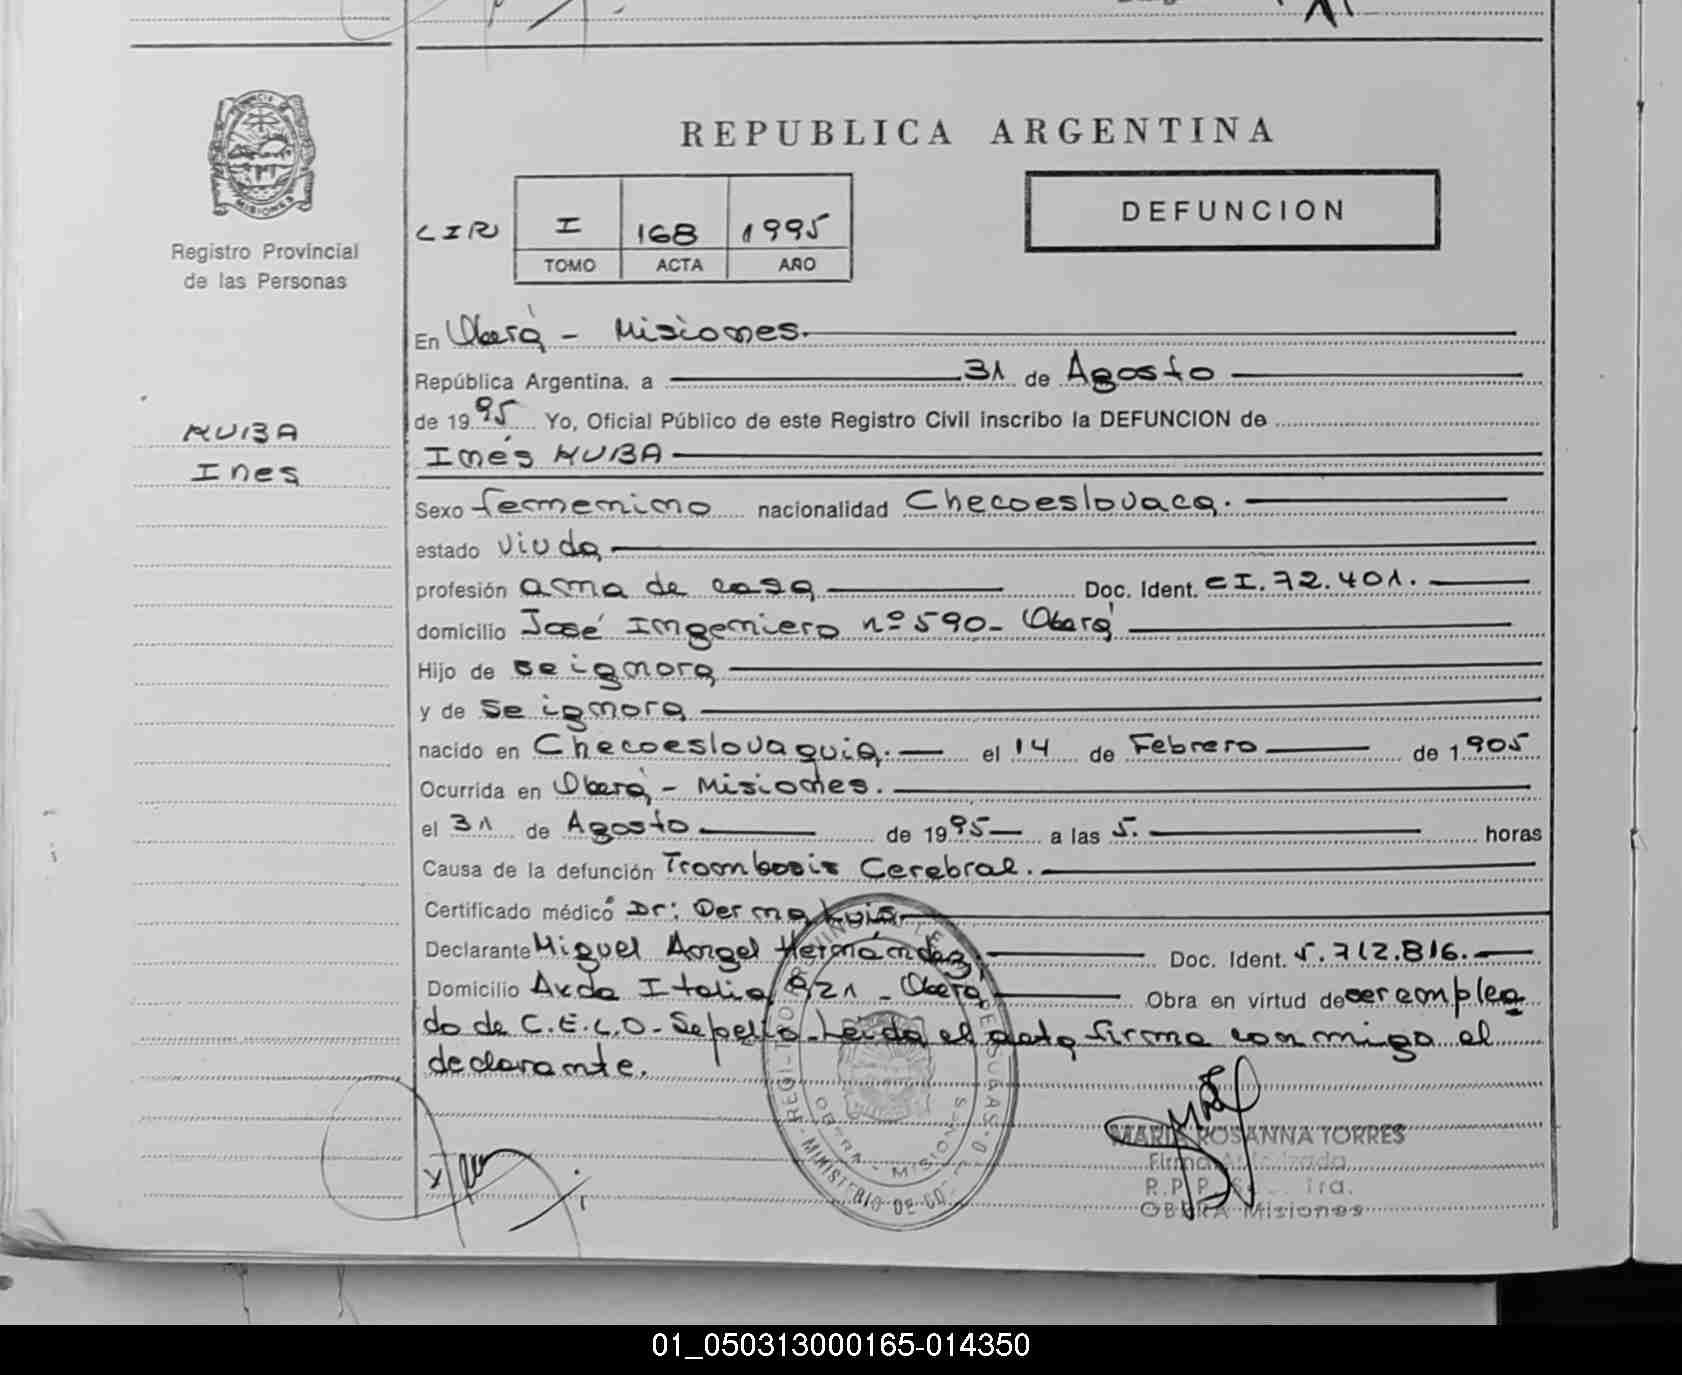 REPUBLICA ARGENTINA
MISIONES
Registro Provincial
de las Personas
CIR
I 168 1995
TOMO ACTA AÑO
DEFUNCION
En Oberá - Misiones.
República Argentina, a 31 de Agosto
de 1995 Yo, Oficial Público de este Registro Civil inscribo la DEFUNCION de
KUBA
Ines
Inés KUBA
Sexo femenino nacionalidad Checoeslovaca.
estado viuda
profesión ama de casa Doc. Ident. CI.72.401.
domicilio José Ingeniero nº 590- Oberá
Hijo de se ignora
y de se ignora
nacido en Checoeslovaquia. el 14 de Febrero de 1905
Ocurrida en Oberá - Misiones.
el 31 de Agosto de 1995 a las 5. horas
Causa de la defunción Trombosis Cerebral.
Certificado médico Dr: Derna Luis
Declarante Miguel Angel Hernández. Doc. Ident. 5.712.816.
Domicilio Avda Italia 921 - Oberá Obra en virtud de ser emplea
do de C.E.L.O- Sepelio- Leida el acta firma conmigo el
declarante.
MARIA ROSANNA TORRES
Firma Autorizada
R.P.P.
OBERA Misiones
01_050313000165-014350